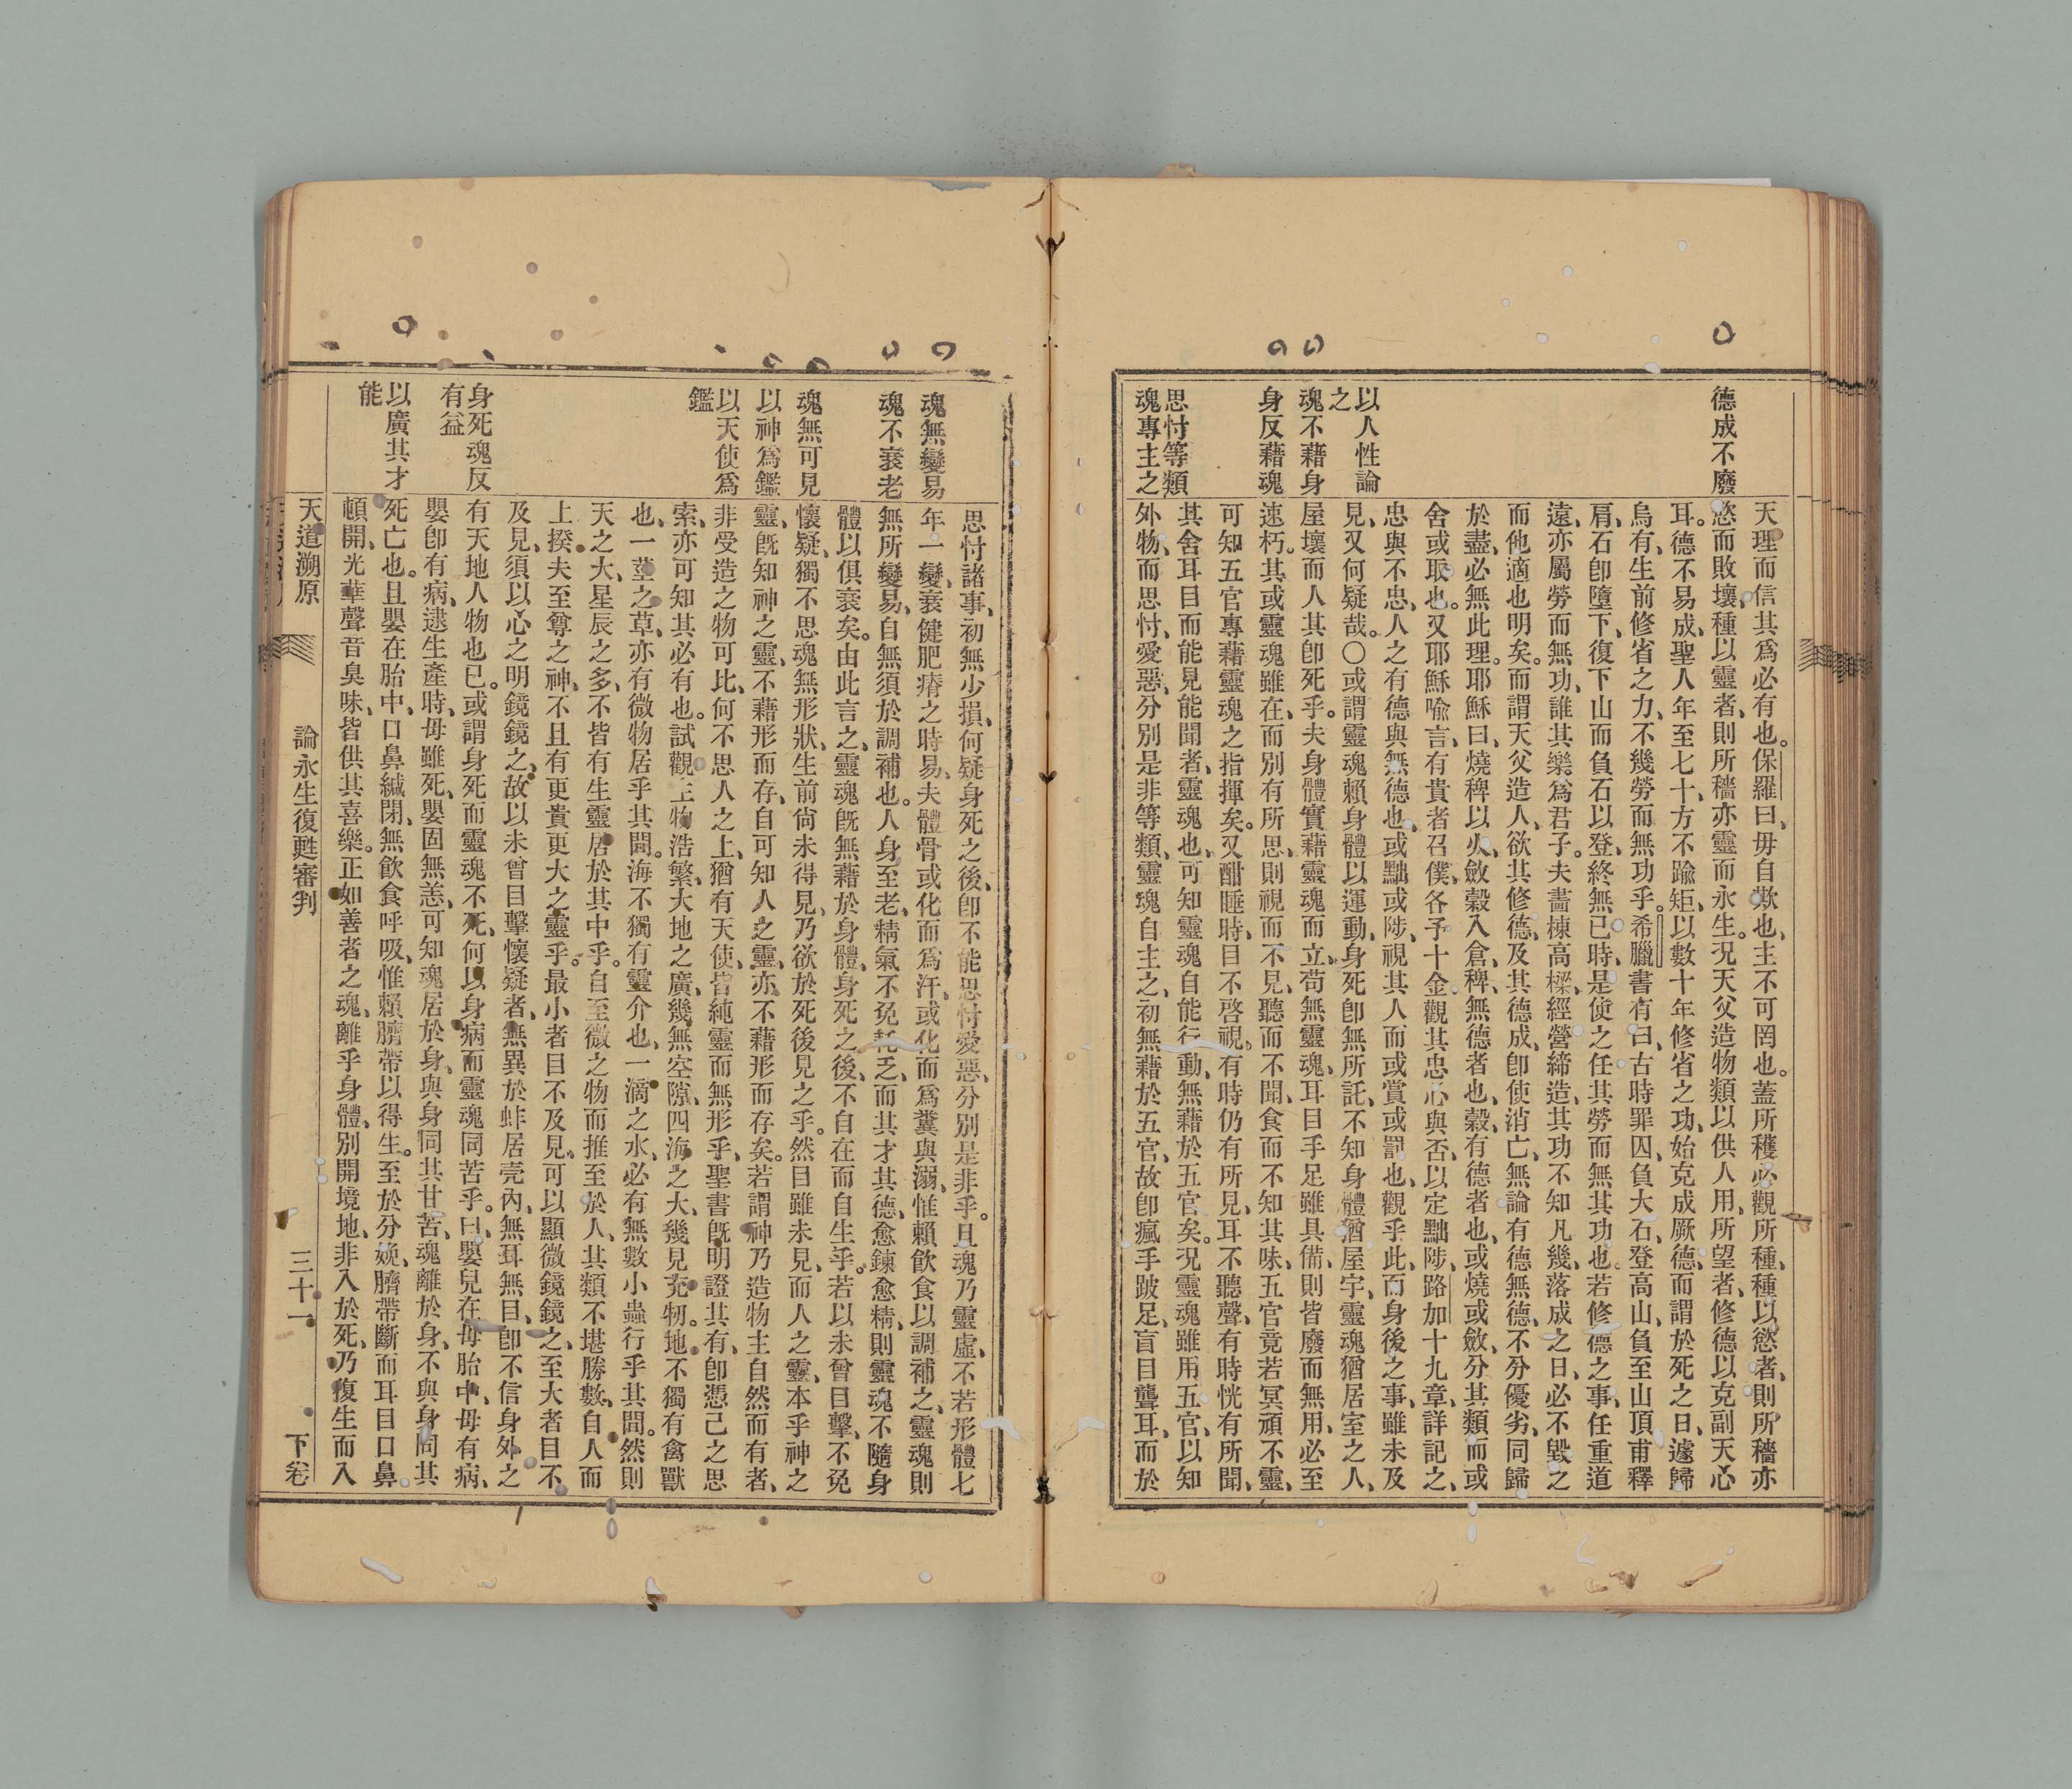 德成不廢
以人性論
之
魂不藉身
身反藉魂
思忖等類
魂專主之
天理而信其爲必有也。保羅曰、毋自欺也、主不可罔也。蓋所穫必觀所種、種以慾者、則所穡亦
慾而敗壞、種以靈者、則所穡亦靈而永生。況天父造物類以供人用、所望者、修德以克副天心
耳。德不易成、聖人年至七十、方不踰矩、以數十年修省之功、始克成厥德、而謂於死之日、遽歸
烏有、生前修省之力、不幾勞而無功乎。希臘書有曰、古時罪囚、負大石、登高山、負至山頂甫釋
肩、石卽墮下、復下山而負石以登、終無已時、是使之任其勞而無其功也。若修德之事、任重道
遠、亦屬勞而無功、誰其樂爲君子。夫畵棟高樑、經營締造、其功不知凡幾、落成之日、必不毀之
而他適也明矣。而謂天父造人、欲其修德、及其德成、卽使消亡、無論有德無德、不分優劣、同歸
於盡、必無此理。耶穌曰、燒稗以火、斂穀入倉、稗、無德者也、穀、有德者也、或燒或斂、分其類而或
舍或取也。又耶穌喻言、有貴者召僕、各予十金、觀其忠心與否、以定黜陟、路加十九章、詳記之、
忠與不忠、人之有德與無德也、或黜或陟、視其人而或賞或罰也、觀乎此、而身後之事、雖未及
見、又何疑哉。〇或謂靈魂賴身體以運動、身死卽無所託、不知身體猶屋宇、靈魂猶居室之人、
屋壞而人其卽死乎。夫身體實藉靈魂而立、苟無靈魂、耳目手足雖具備、則皆廢而無用、必至
速朽。其或靈魂雖在、而別有所思、則視而不見、聽而不聞、食而不知其味、五官竟若冥頑不靈、
可知五官專藉靈魂之指揮矣。又酣睡時、目不啓視、有時仍有所見、耳不聽聲、有時恍有所聞、
其舍耳目而能見能聞者、靈魂也、可知靈魂自能行動、無藉於五官矣。況靈魂雖用五官、以知
外物、而思忖、愛惡、分別是非等類、靈魂自主之、初無藉於五官、故卽瘋手跛足、盲目聾耳、而於
魂無變易
魂不衰老
魂無可見
以神爲鑑
以天使爲
鑑
身死魂反
有益
以廣其才
能
思忖諸事、初無少損、何疑身死之後、卽不能思忖愛惡、分別是非乎。且魂乃靈虛、不若形體七
年一變、衰健肥瘠之時易、夫體骨或化而爲汗、或化而爲糞與溺、惟賴飮食以調補之、靈魂則
無所變易、自無須於調補也。人身至老、精氣不免耗乏、而其才其德、愈鍊愈精、則靈魂不隨身
體以俱衰矣。由此言之、靈魂旣無藉於身體、身死之後、不自在而自生乎。若以未曾目擊、不免
懷疑、獨不思魂無形狀、生前尙未得見、乃欲於死後見之乎。然目雖未見、而人之靈、本乎神之
靈、旣知神之靈、不藉形而存、自可知人之靈、亦不藉形而存矣。若謂神乃造物主自然而有者、
非受造之物可比、何不思人之上、猶有天使、皆純靈而無形乎、聖書旣明證其有、卽憑己之思
索、亦可知其必有也。試觀上物浩繁、大地之廣、幾無空隙、四海之大、幾見充牣。地不獨有禽獸
也、一莖之草、亦有微物居乎其間。海不獨有靈介也、一滴之水、必有無數小蟲行乎其間。然則
天之大、星辰之多、不皆有生靈居於其中乎。自至微之物而推至於人、其類不堪勝數、自人而
上揆夫至尊之神、不且有更貴更大之靈乎。最小者目不及見、可以顯微鏡鏡之、至大者目不
及見、須以心之明鏡鏡之、故以未曾目擊懷疑者、無異於蚌居壳內、無耳無目、卽不信身外之
有天地人物也已。或謂身死而靈魂不死、何以身病而靈魂同苦乎。曰、嬰兒在母胎中、母有病、
嬰卽有病、逮生產時、母雖死、嬰固無恙、可知魂居於身、與身同其甘苦、魂離於身、不與身同其
死亡也。且嬰在胎中、口鼻緘閉、無飮食呼吸、惟賴臍帶以得生。至於分娩、臍帶斷而耳目口鼻
頓開、光華聲音臭味、皆供其喜樂。正如善者之魂、離乎身體、別開境地、非入於死、乃復生而入
天道溯原　論永生復甦審判　三十一　下卷